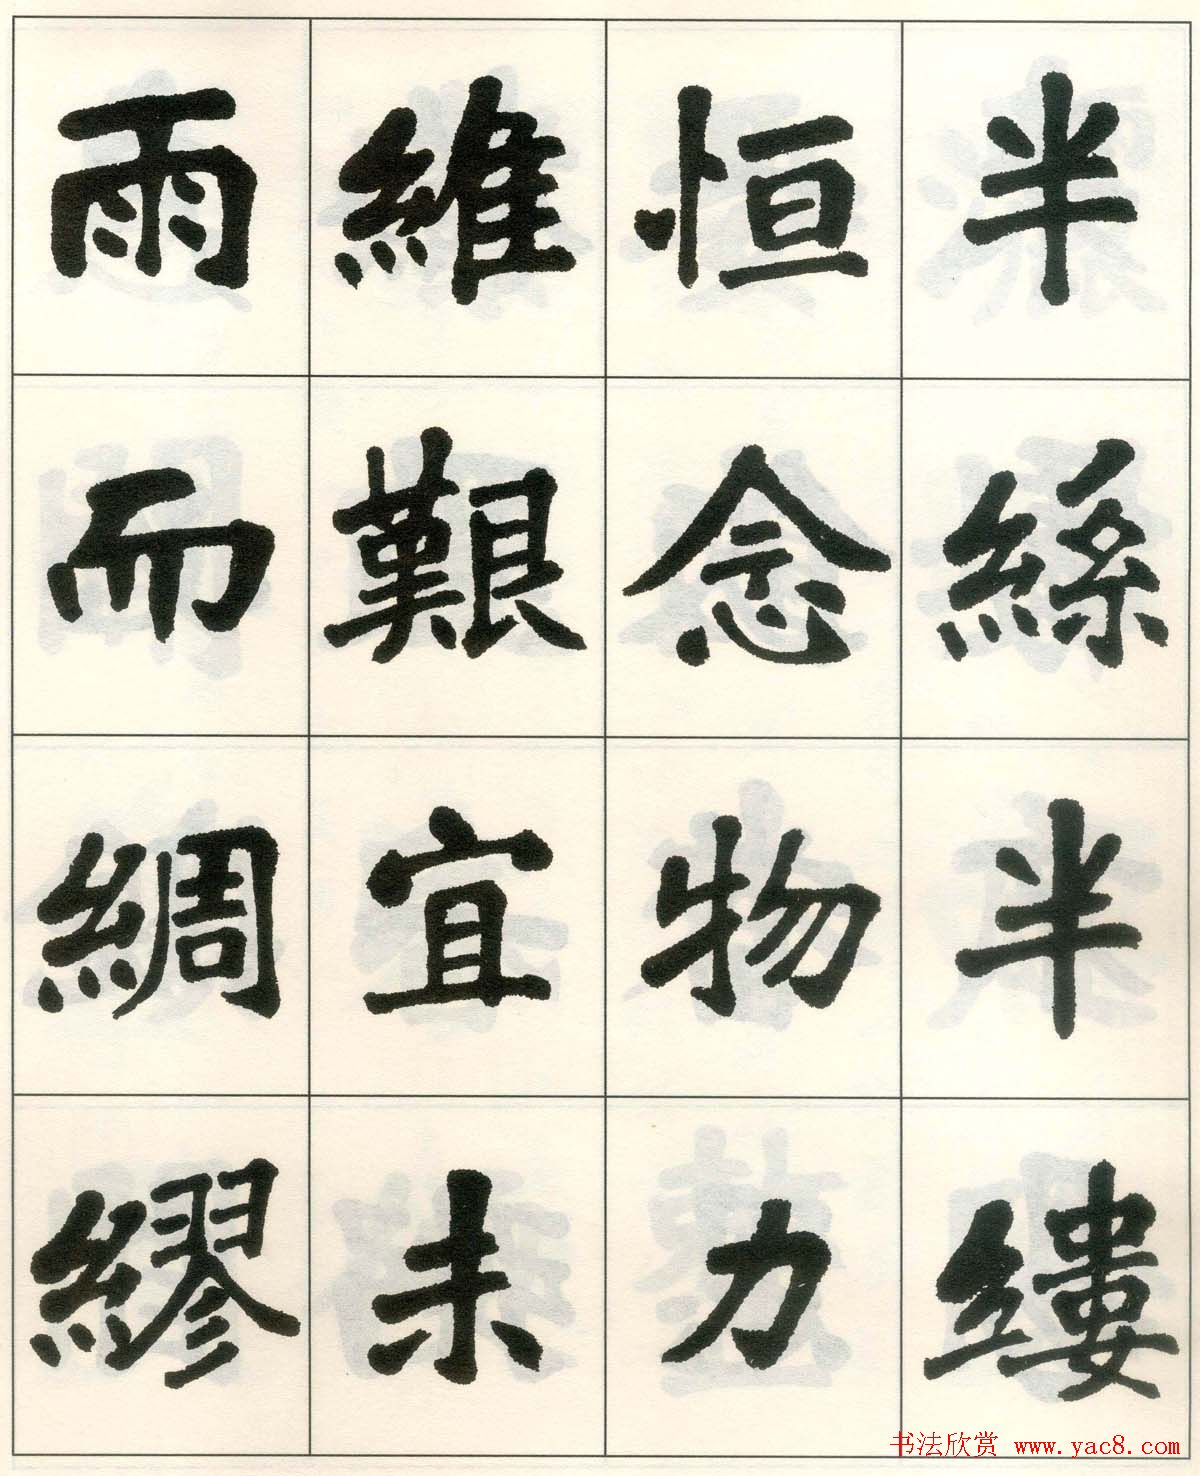 半絲半縷
恒念物力
維艱宜未
雨而綢繆
书法欣赏 www.yac8.com